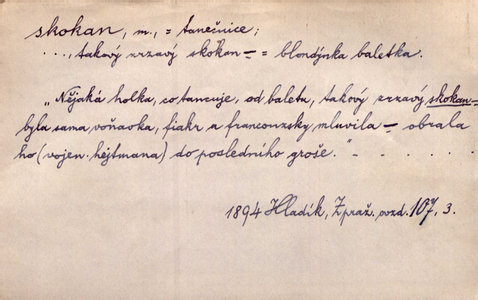 skokan, m., = tanečnice;
..., takový zrzavý skokan — = blondýnka baletka.
„Nějaká holka, co tancuje, od baletu, takový zrzavý skokan —
byla sama voňavka, fiakr a francouzsky mluvila — obrala
ho (vojen. hejtmana) do posledního groše." — . . . . .
1894 Hladík, Z praž. ovzd. 107, 3.